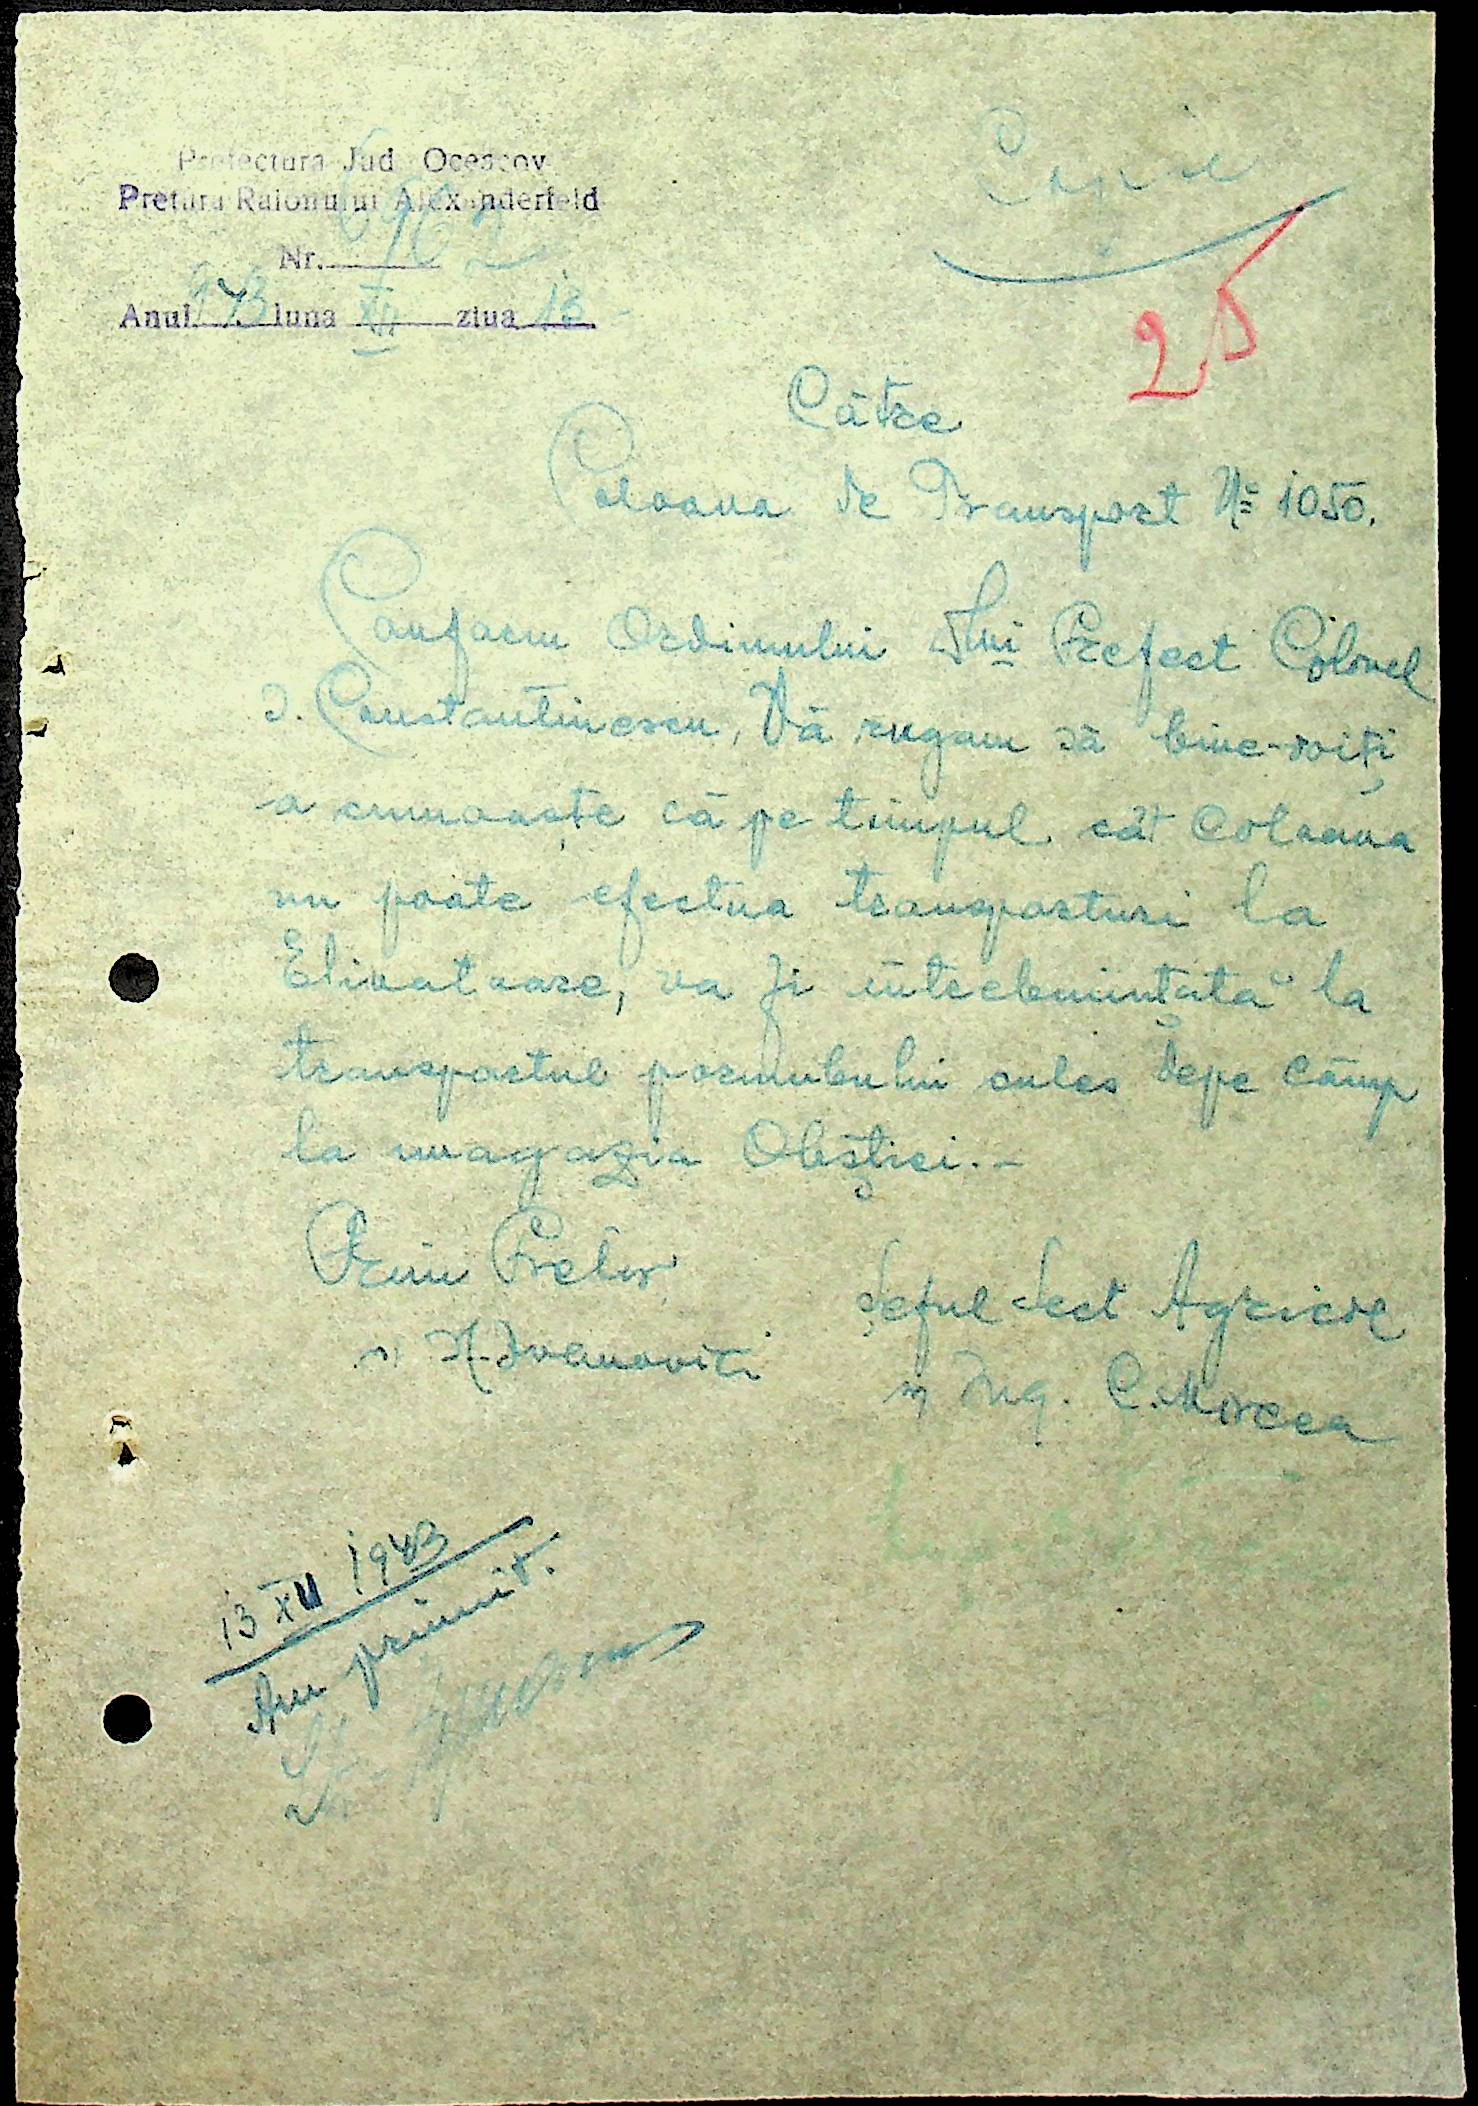 Prefectura Jud. Oceacov
Pretura Raionului Alexanderfeld
Nr. 6962
Anul 943 luna XII ziua 13
Copie
25
Către
Coloana de Transport № 1050.
Conform Ordinului Dlui Prefect Colonel
I. Constantinescu, Vă rugam să bine-voiți
a cunoaște că pe timpul cât Coloana
nu poate efectua transporturi la
Elivatoare, va fi întrebuințată la
transportul porumbului cules depe câmp
la magazia Obștiei.-
Prim Pretor
Șeful Sect Agricol
Ing. C. Mircea
13 XII 1943
Am primit.